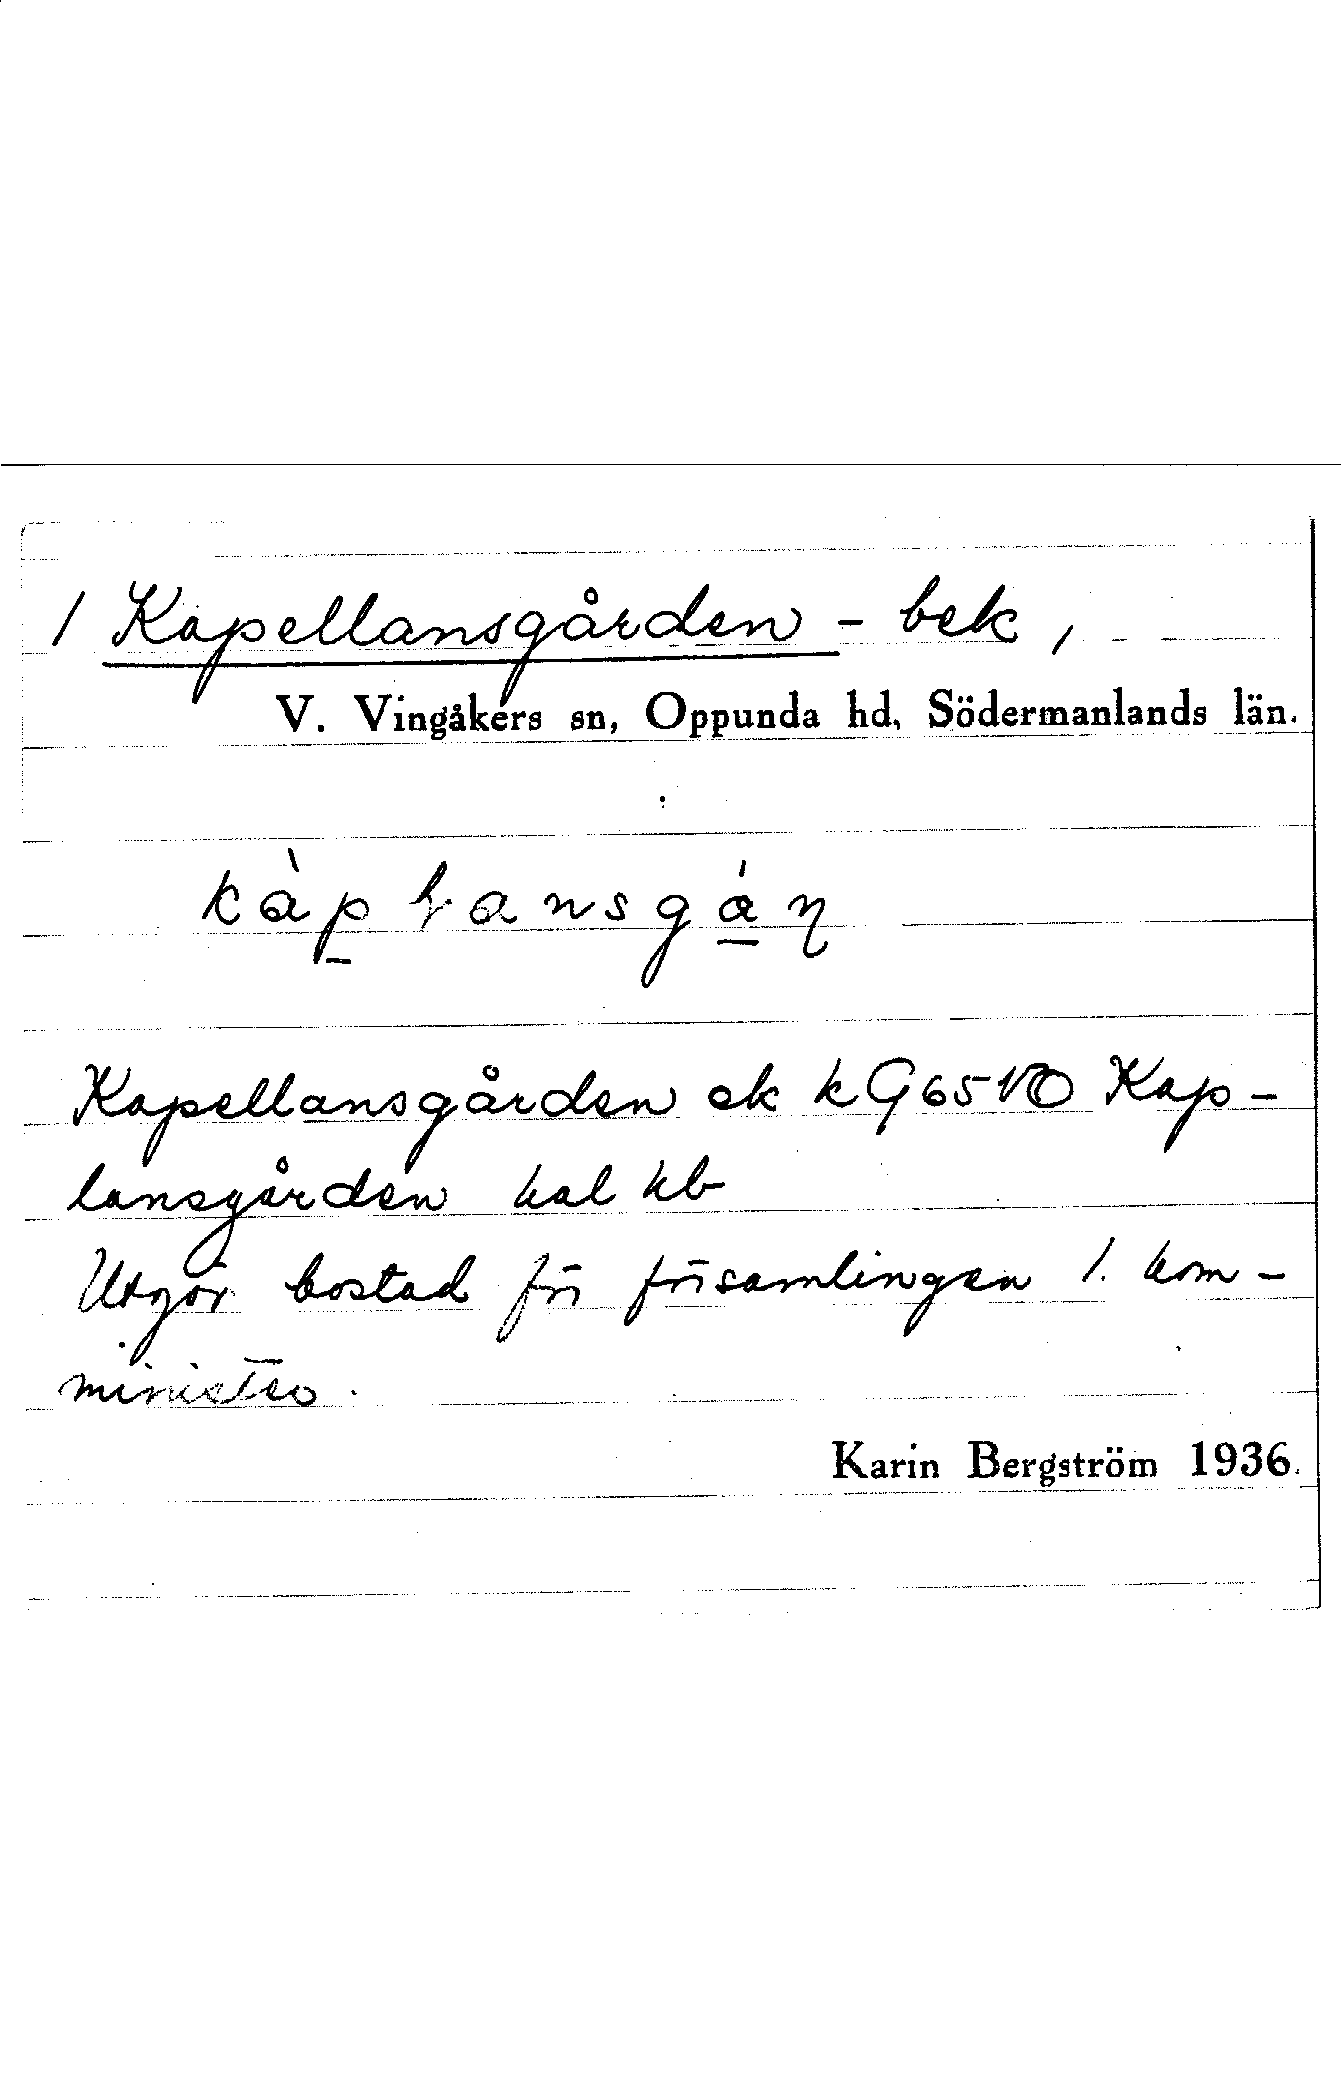 1 Kapellansgården - bek,
V. Vingåkers sn, Oppunda hd, Södermanlands län.
Kapellansgården ek k G65 VO Kap-
lansgården kal kb
Utgör bostad för församlingen 1. kom-
minister.
Karin Bergström 1936.